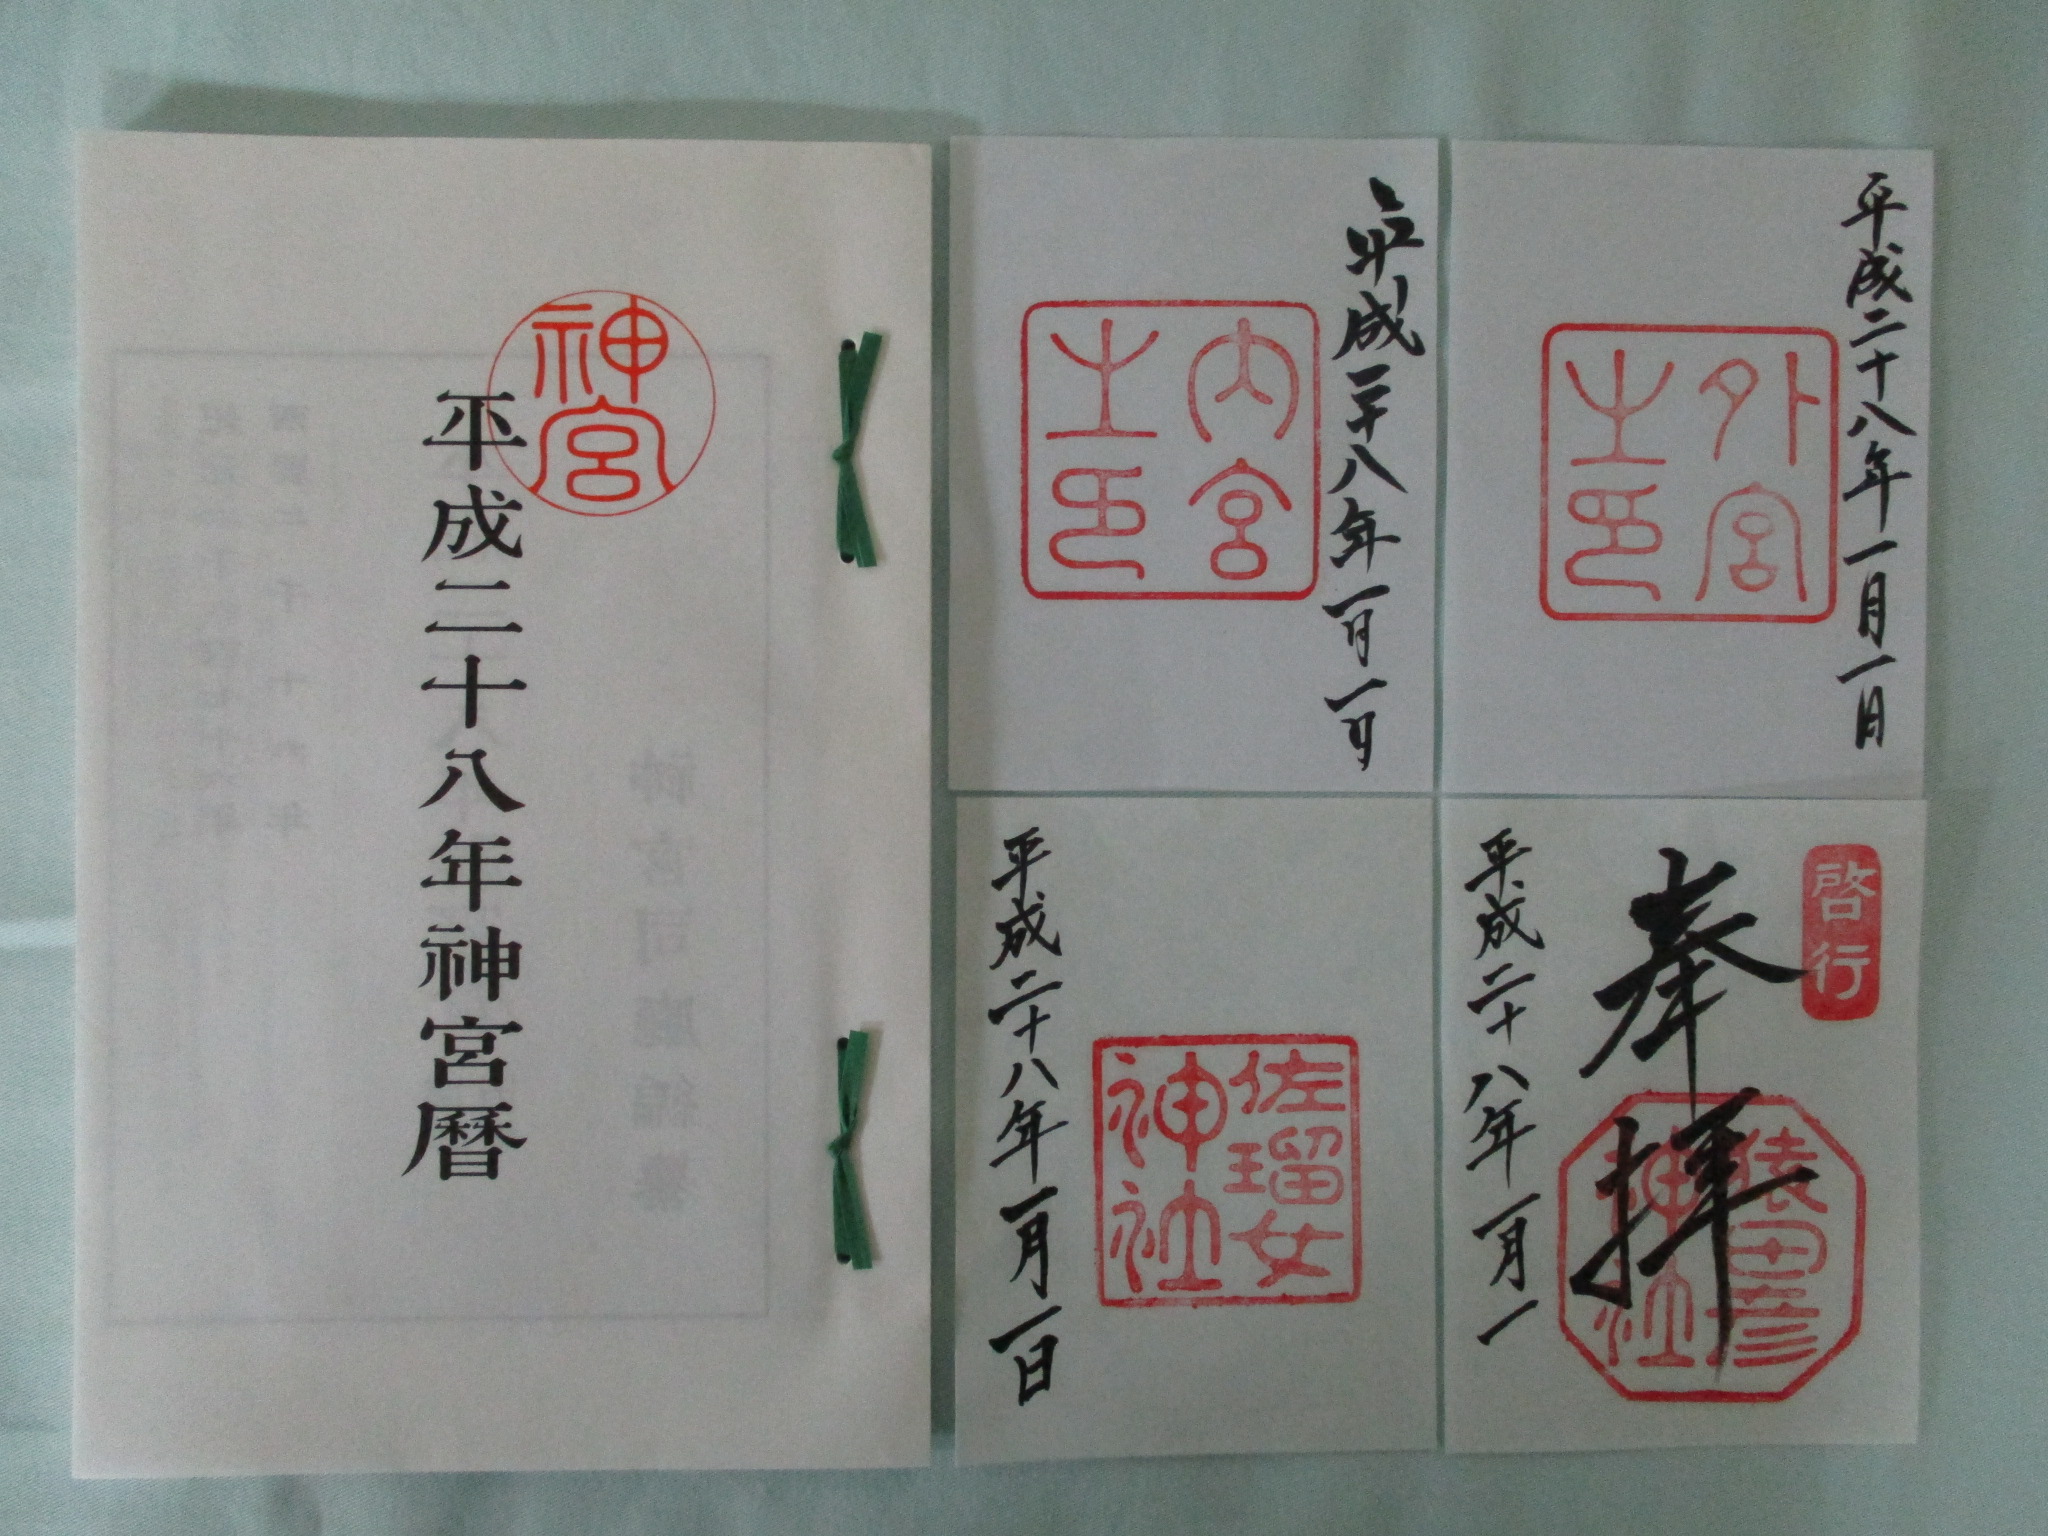 神宮
平成二十八年神宮暦
平成二十八年一月一日
内宮
之印
平成二十八年一月一日
外宮
之印
平成二十八年一月一日
佐瑠女
神社
啓行
奉拝
猿田彦
神社
平成二十八年一月一